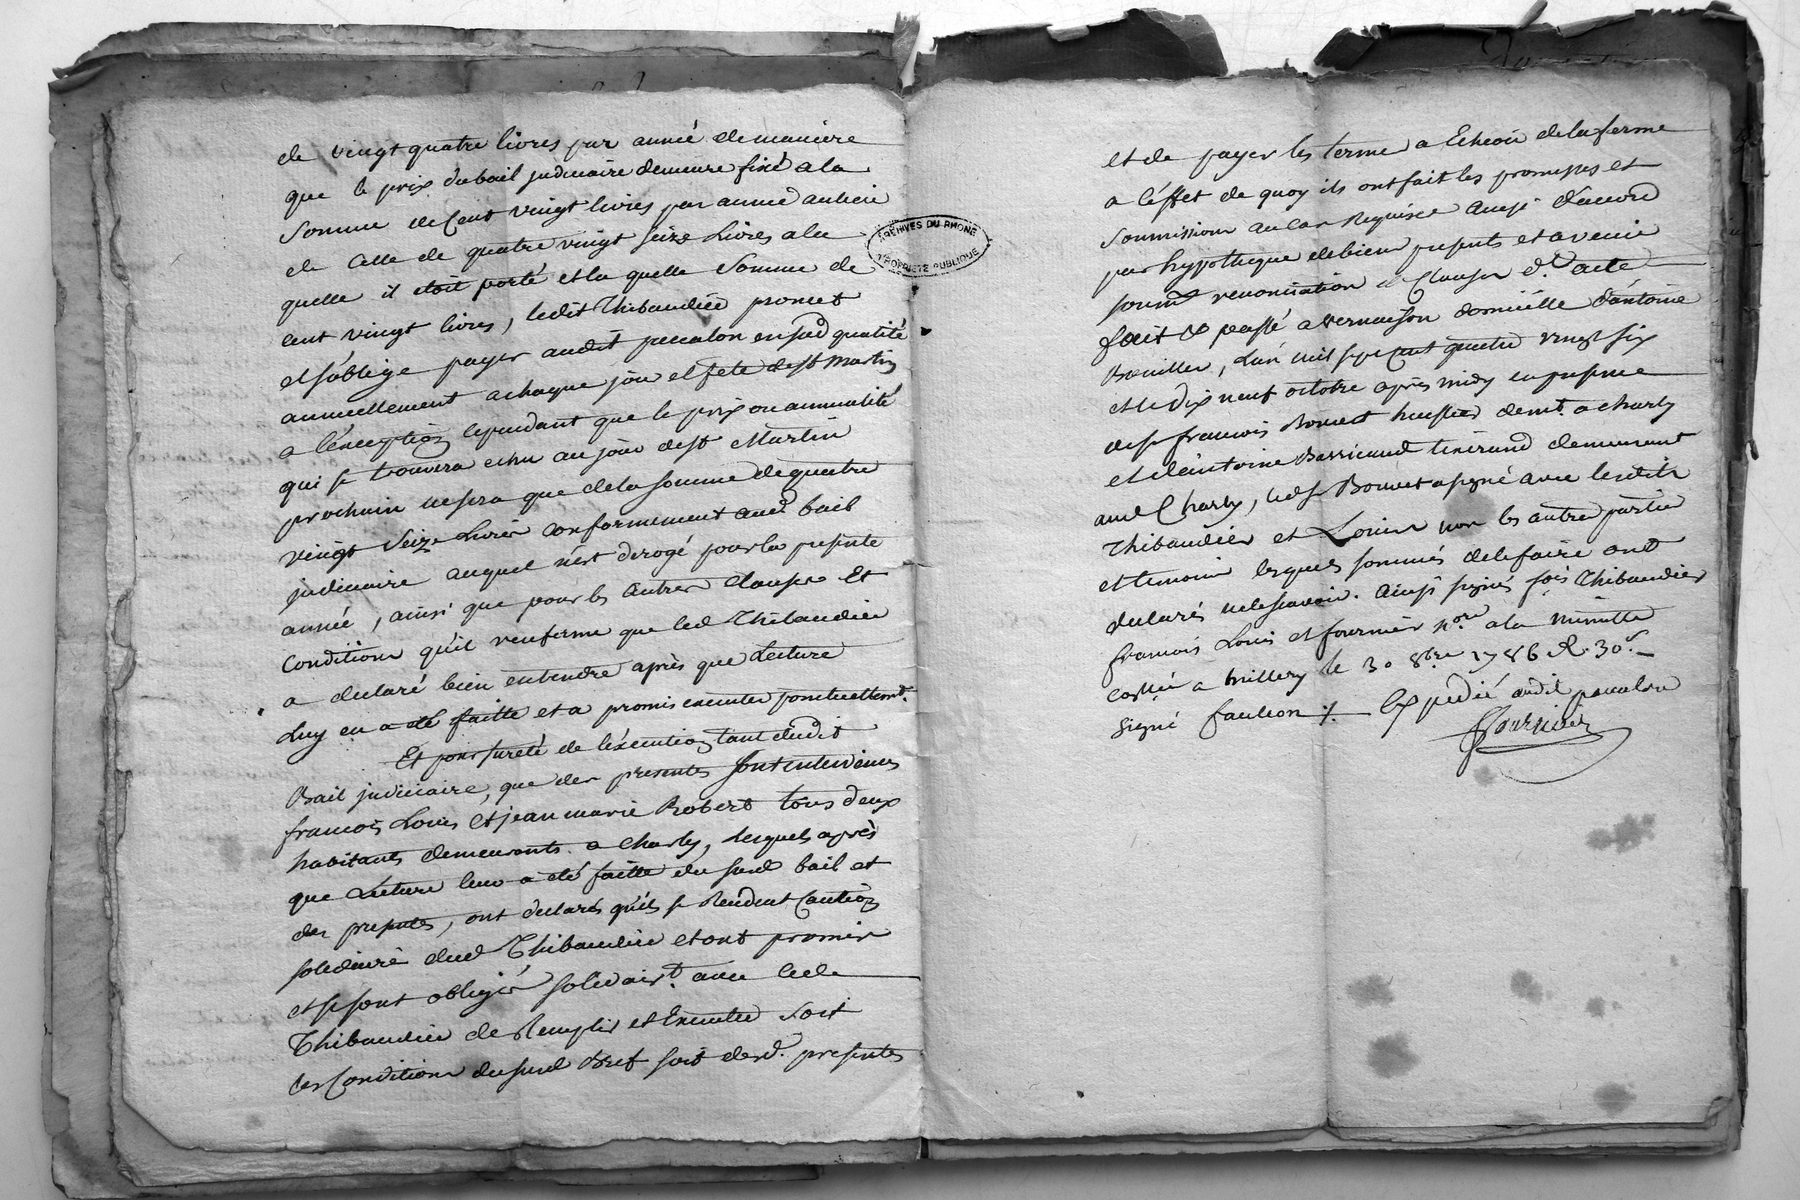 de vingt quatre livres par année de maniere
que le prix dubail judiciaire demeure fixé a la
somme de Cent vingt livres par année aulieu
de Celle de quatre vingt seize Livres a la
quelle il etoit porté et la quelle somme de
cent vingt livres, ledit Thibaudier promet
et s'oblige payer audit pacalon en sad qualité
annuellement a chaque jour et fete de st Martin
a l'exception cependant que le prix ou annualité
qui se trouvera echu au jour de st Martin
prochain ne sera que de la somme de quatre
vingt seize Livres conformement aud bail
judiciaire auquel n'est derogé pour la presente
année, ainsi que pour les autres clauses Et
Conditions qu'il renferme que led Thibaudier
a declaré bien entendre après que Lecture
Luy en a été faitte et a promis executer ponctuellemt.
Et pour sureté de l'éxecution tant dudit
Bail judiciaire, que des presentes sont intervenus
francois Louis et jean marie Robert tous deux
habitants demeurants a Charly, lesquels après
que Lecture leur a été faitte du susd bail et
des presentes, ont declarés qu'ils se Rendent Caution
solidaire dud Thibaudier et ont promis
et se sont obligés solidairt. avec led
Thibaudier de Remplir et Executer soit
les Conditions du susd Bail soit desd. presentes
et de payer les terme a Echeoir de la ferme
a l'éffet de quoy ils ont fait les promesses et
soumissions au cas Requises ainsi d'accord
par hypotheque de biens presents et avenir
soumon renonciation et Clauses d.t acte
fait et passé a Vernaison domicille d'antoine
Bouiller, l'an mil sept cent quatre vingt six
et le dix neuf octobre après midy en presence
de sr francois Bonnet huissier demt. a charly
et d'antoine Barricaud tisserand demeurant
aud Charly, led sr Bonnet a signé avec lesdits
Thibaudier et Louis non les autres parties
et temoin lesquels sommés de le faire ont
declarés ne le scavoir. Ainsi signés fois Thibaudier
francois Louis et fournier nore a la minutte
a millery le 30 8bre 1786 R. 30s.
signé faulcon ·/. Expedié audit pacalon
Fournier
ARCHIVES DU RHONE
PROPRIÉTÉ PUBLIQUE